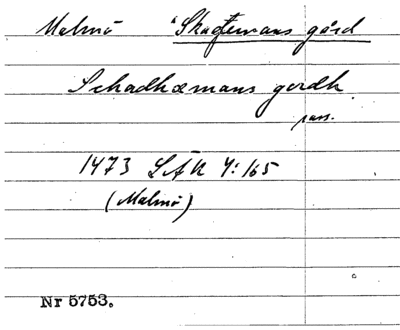 Malmö "Skattemans gård
Schadhæmans gordh
pass.
1473 LÄU 4:165
(Malmö)
Nr 5753.